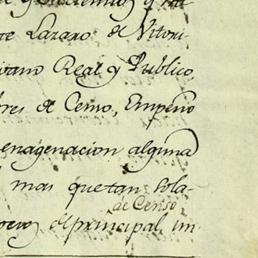 te Lazaro de Vitori
ivano Real y Publico,
bres de Censo, Empeño
enagenacion alguna
mas que tan sola
de Censo
de principal, im